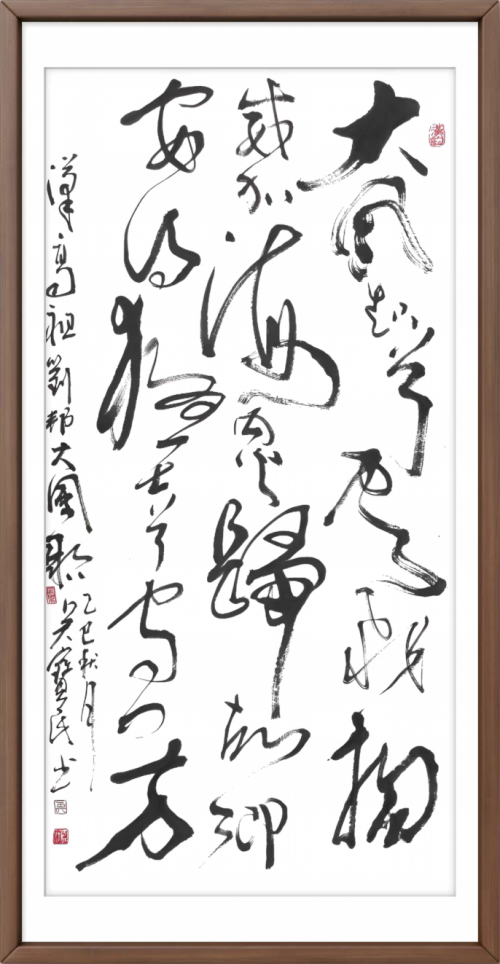 大風起兮雲飛揚
威加海内兮歸故鄉
安得猛士兮守四方
漢高祖劉邦大風歌
乙巳秋月
吴寶民书